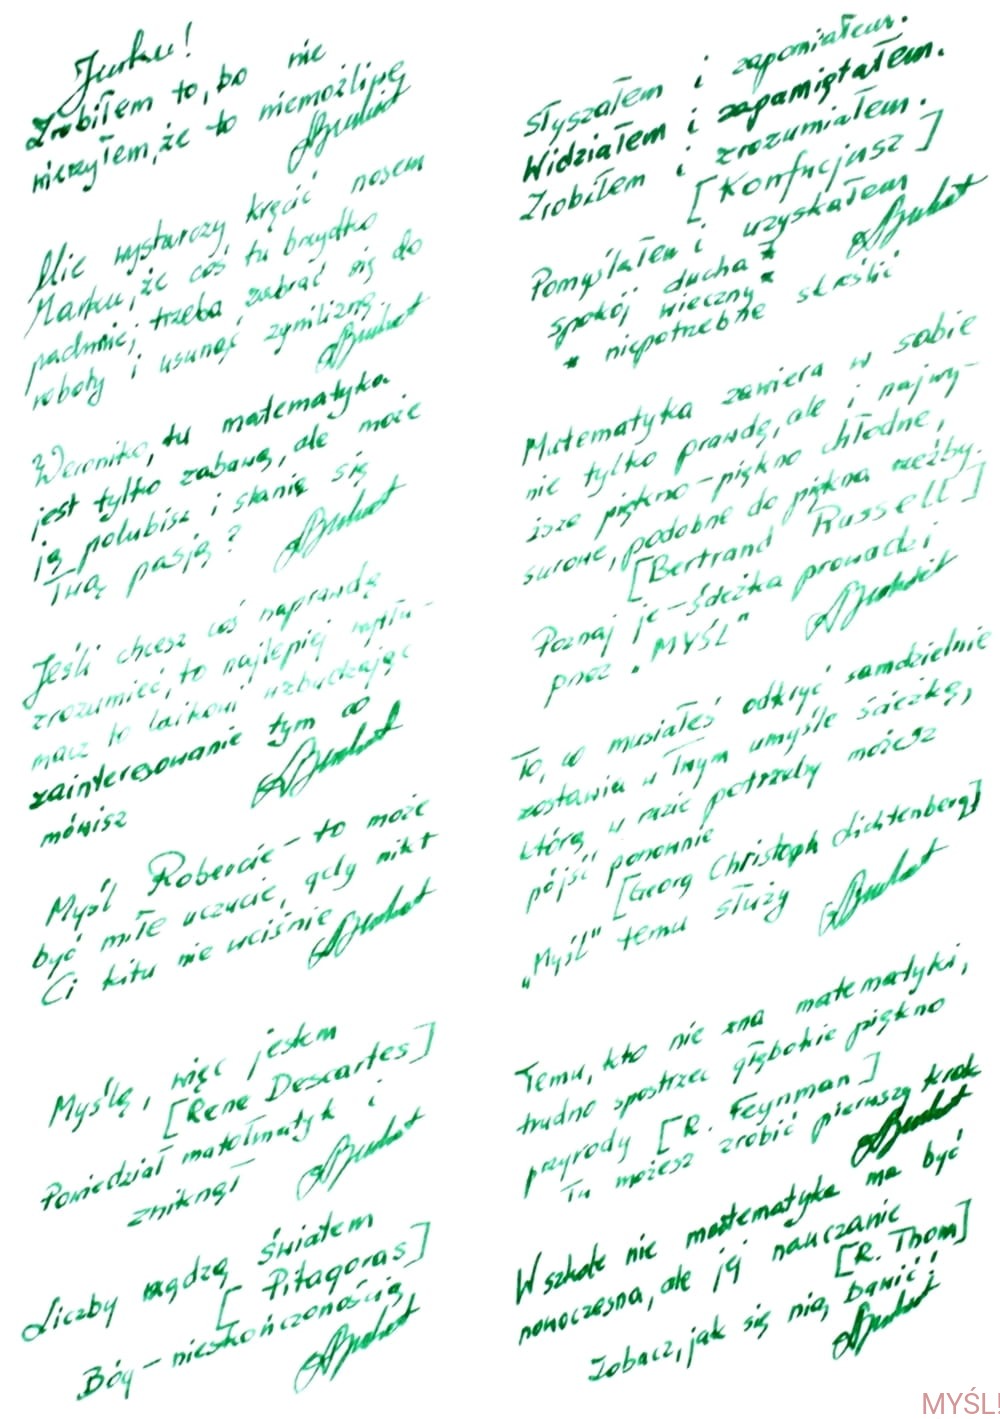 Jurku!
Zrobiłem to, bo nie
wierzyłem, że to niemożliwe
Nie wystarczy kręcić nosem
Marku, że coś tu brzydko
pachnie; trzeba zabrać się do
roboty i usunąć zgniliznę
Weroniko, tu matematyka
jest tylko zabawą, ale może
ją polubisz i stanie się
Twą pasją?
Jeśli chcesz coś naprawdę
zrozumieć, to najlepiej wytłu-
macz to laikowi wzbudzając
zainteresowanie tym co
mówisz
Myśl Robercie - to może
być miłe uczucie, gdy nikt
Ci kitu nie wciśnie
Myślę, więc jestem
[Rene Descartes]
Powiedział matołmatyk i
zniknął
Liczby rządzą światem
[Pitagoras]
Bóg - nieskończonością
Słyszałem i zapomniałem.
Widziałem i zapamiętałem.
Zrobiłem i zrozumiałem.
[Konfucjusz]
Pomyślałem i uzyskałem
spokój ducha*
wieczny*
* niepotrzebne skreślić
Matematyka zawiera w sobie
nie tylko prawdę, ale i najwy-
ższe piękno - piękno chłodne,
surowe, podobne do piękna rzeźby.
[Bertrand Russell]
Poznaj je - ścieżka prowadzi
przez "MYŚL"
To, co musiałeś odkryć samodzielnie
zostawia w Twym umyśle ścieżkę,
którą w razie potrzeby możesz
pójść ponownie
[Georg Christoph Lichtenberg]
"Myśl" temu służy
Temu, kto nie zna matematyki,
trudno spostrzec głębokie piękno
przyrody [R. Feynman]
Tu możesz zrobić pierwszy krok
W szkole nie matematyka ma być
nowoczesna, ale jej nauczanie
[R. Thom]
Zobacz, jak się nią bawić!
MYŚL!